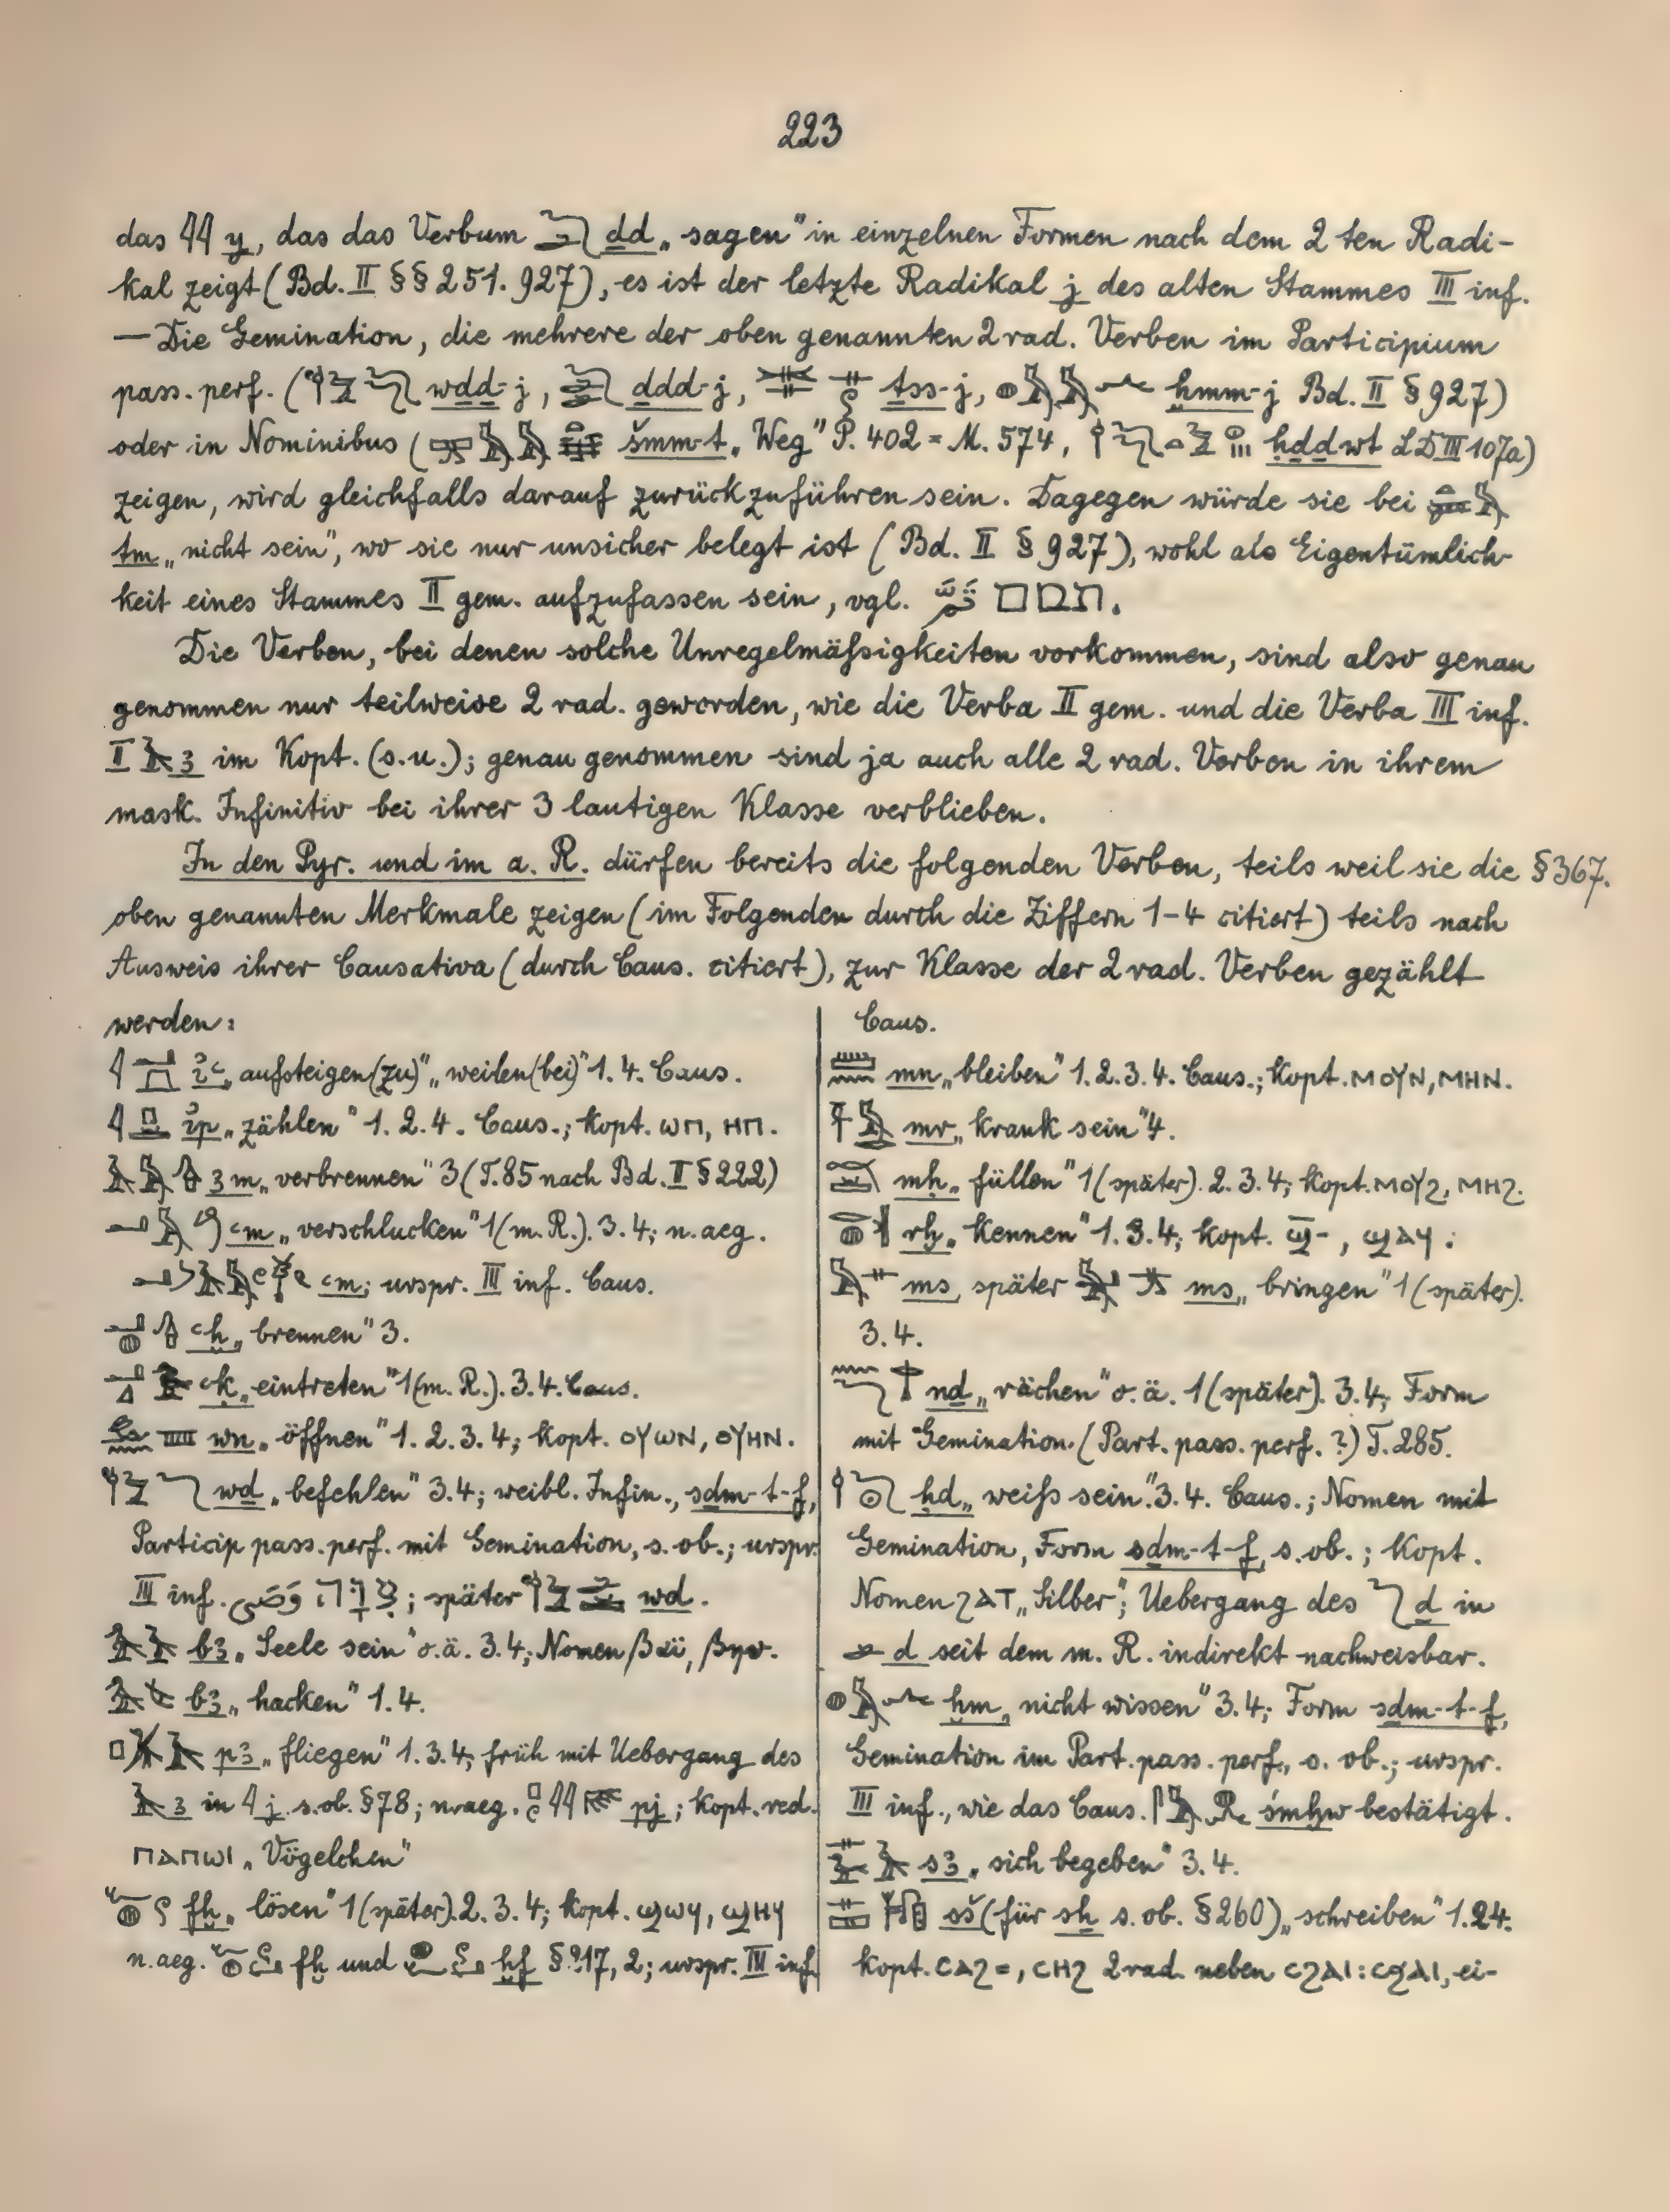 223
das 𓇌 y, das das Verbum 𓆓𓂧 ḏd „sagen" in einzelnen Formen nach dem 2ten Radi-
kal zeigt (Bd. II §§ 251. 927), es ist der letzte Radikal j des alten Stammes III inf.
— Die Gemination, die mehrere der oben genannten 2rad. Verben im Participium
pass. perf. ( wḏḏ-j, ḏdd-j, ṯss-j, ḫmm-j Bd. II § 927)
oder in Nominibus ( šmm-t „Weg" P. 402 = M. 574, ḥḏḏwt LD III 107a)
zeigen, wird gleichfalls darauf zurückzuführen sein. Dagegen würde sie bei
tm „nicht sein", wo sie nur unsicher belegt ist (Bd. II § 927), wohl als Eigentümlich-
keit eines Stammes II gem. aufzufassen sein, vgl.
Die Verben, bei denen solche Unregelmäßigkeiten vorkommen, sind also genau
genommen nur teilweise 2 rad. geworden, wie die Verba II gem. und die Verba III inf.
I 𓄿 ꜣ im Kopt. (s.u.); genau genommen sind ja auch alle 2 rad. Verben in ihrem
mask. Infinitiv bei ihrer 3 lautigen Klasse verblieben.
In den Pyr. und im a. R. dürfen bereits die folgenden Verben, teils weil sie die § 367.
oben genannten Merkmale zeigen (im Folgenden durch die Ziffern 1-4 citiert) teils nach
Ausweis ihrer Causativa (durch Caus. citiert), zur Klasse der 2 rad. Verben gezählt
werden:
ỉꜥ „aufsteigen (zu)" „weilen (bei)" 1. 4. Caus.
ỉp „zählen" 1. 2. 4. Caus.; Kopt. ⲱⲡ, ⲏⲡ.
ꜣm „verbrennen" 3 (T. 85 nach Bd. II § 222)
ꜥm „verschlucken" 1 (m. R.). 3. 4; n. aeg.
ꜥm; urspr. III inf. Caus.
ꜥḫ „brennen" 3.
ꜥḳ „eintreten" 1 (m. R.). 3. 4. Caus.
wn „öffnen" 1. 2. 3. 4; Kopt. ⲟⲩⲱⲛ, ⲟⲩⲏⲛ.
wḏ „befehlen" 3. 4; weibl. Infin., sḏm-t-f,
Particip pass. perf. mit Gemination, s. ob.; urspr.
III inf. ; später wd.
bꜣ „Seele sein" o. ä. 3. 4; Nomen βαϊ,
bꜣ „hacken" 1. 4.
pꜣ „fliegen" 1. 3. 4; früh mit Uebergang des
𓄿 ꜣ in 𓇋 j s. ob. § 78; n. aeg. pj; Kopt. red.
ⲡⲁⲡⲱⲓ „Vögelchen"
fḫ „lösen" 1 (später). 2. 3. 4; Kopt. ϣⲱϥ, ϣⲏϥ
n. aeg. fḫ und ḫf 2; urspr. III inf.
Caus.
mn „bleiben" 1. 2. 3. 4. Caus.; Kopt. ⲙⲟⲩⲛ, ⲙⲏⲛ.
mr „krank sein" 4.
mḥ „füllen" 1 (später). 2. 3. 4; Kopt. ⲙⲟⲩϩ, ⲙⲏϩ.
rḫ „kennen" 1. 3. 4; Kopt. ϣ̄-, ϣⲁϥ:
ms, später ms „bringen" 1 (später).
3. 4.
nḏ „rächen" o. ä. 1 (später). 3. 4; Form
mit Gemination (Part. pass. perf.?) T. 285.
ḥḏ „weiß sein". 3. 4. Caus.; Nomen mit
Gemination, Form sḏm-t-f, s. ob.; Kopt.
Nomen ϩⲁⲧ „Silber"; Uebergang des 𓆓 ḏ in
𓂧 d seit dem m. R. indirekt nachweisbar.
ḫm „nicht wissen" 3. 4; Form sḏm-t-f,
Gemination im Part. pass. perf., s. ob.; urspr.
III inf., wie das Caus. śmḫw bestätigt.
sꜣ „sich begeben" 3. 4.
sš (für sẖ s. ob. § 260) „schreiben" 1. 2 4.
kopt. ⲥⲁϩ=, ⲥⲏϩ 2 rad. neben ⲥϩⲁⲓ : ⲥϧⲁⲓ, ei-